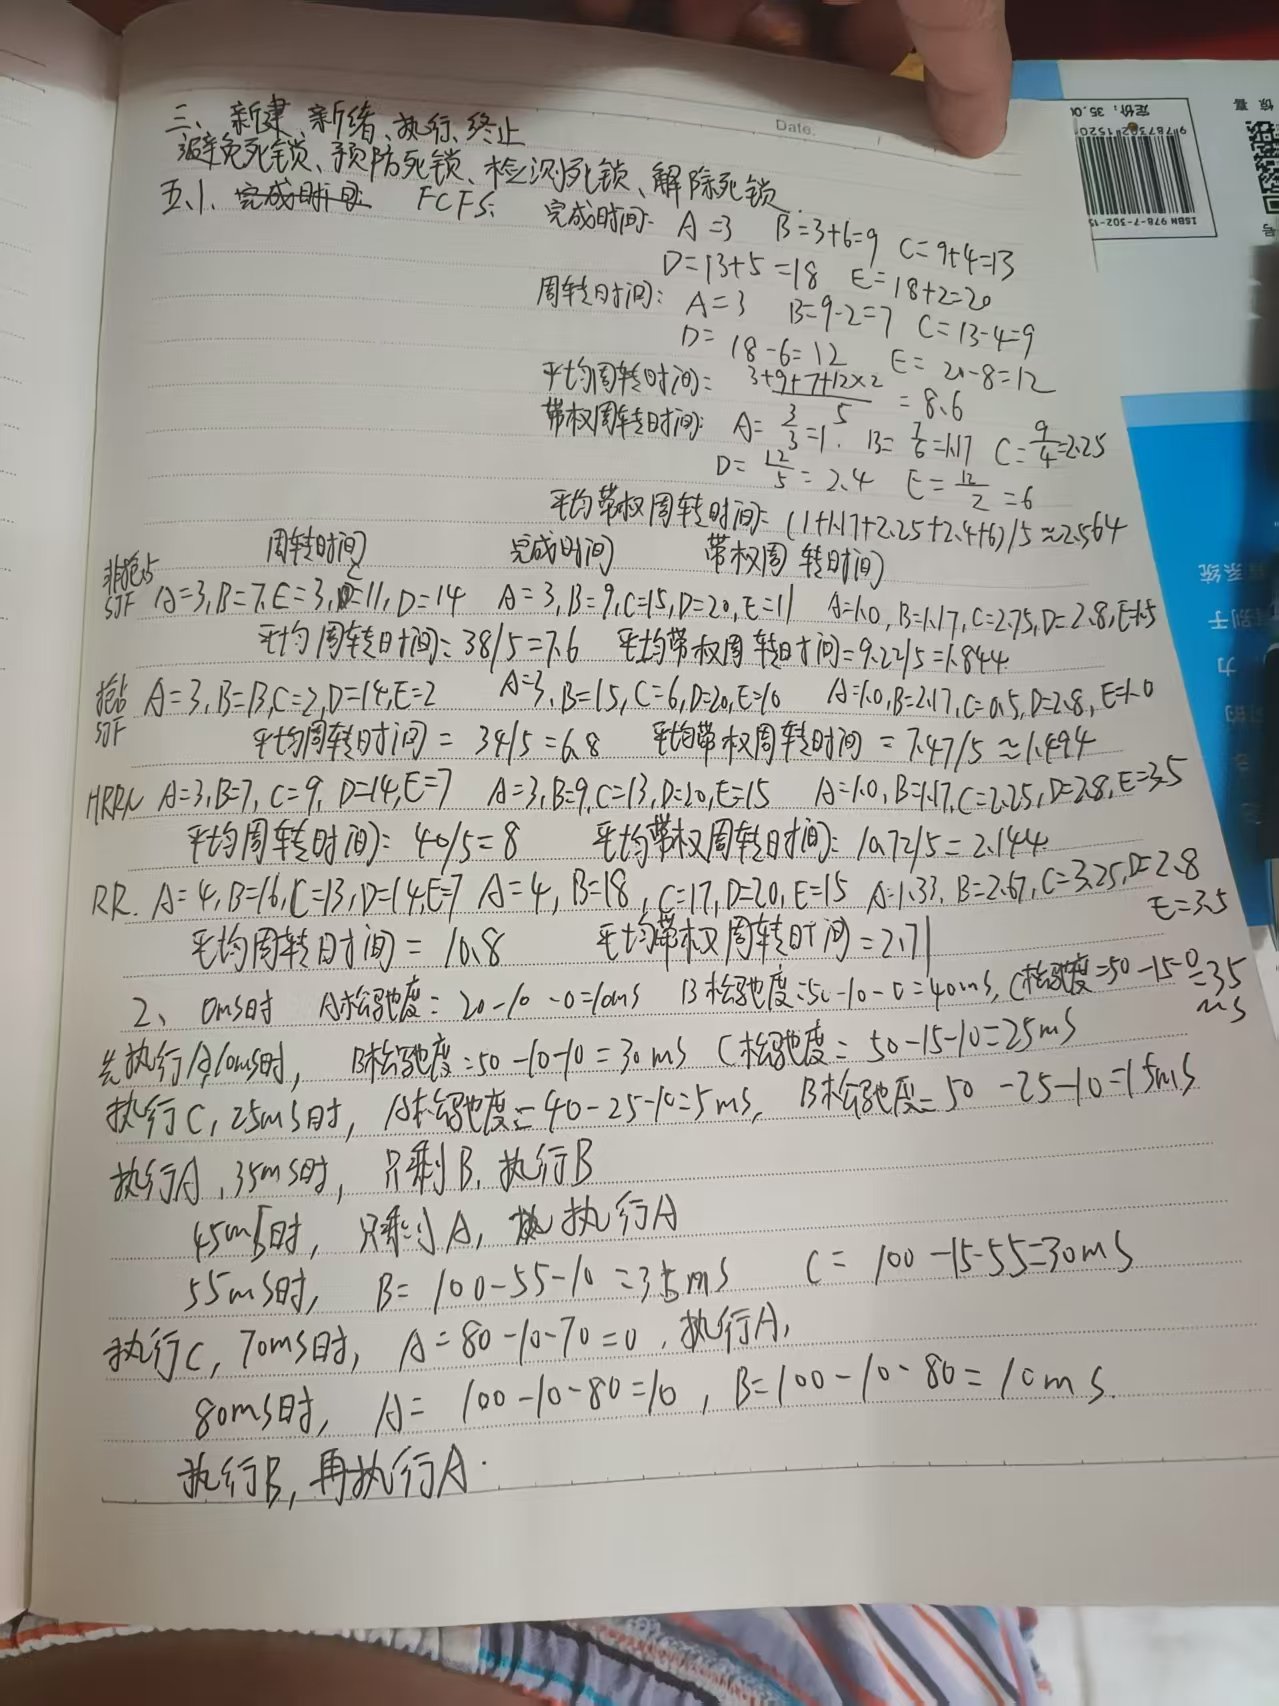 Date.
三、新建、新绪、执行、终止
避免死锁、预防死锁、检测死锁、解除死锁.
五、1. 完成时间 FCFS: 完成时间: A=3 B=3+6=9 C=9+4=13
D=13+5=18 E=18+2=20
周转时间: A=3 B=9-2=7 C=13-4=9
D=18-6=12 E=20-8=12
平均周转时间: (3+9+7+12×2)/5 = 8.6
带权周转时间: A=3/3=1. B=7/6=1.17 C=9/4=2.25
D=12/5=2.4 E=12/2=6
平均带权周转时间: (1+1.17+2.25+2.4+6)/5≈2.564
周转时间 完成时间 带权周转时间
非抢占SJF A=3,B=7,E=3,C=11,D=14 A=3,B=9,C=15,D=20,E=11 A=1.0,B=1.17,C=2.75,D=2.8,E=1.5
平均周转时间: 38/5=7.6 平均带权周转时间=9.22/5=1.844
抢占SJF A=3,B=13,C=2,D=14,E=2 A=3,B=15,C=6,D=20,E=10 A=1.0,B=2.17,C=0.5,D=2.8,E=1.0
平均周转时间=34/5=6.8 平均带权周转时间=7.47/5≈1.494
HRRN A=3,B=7,C=9,D=14,E=7 A=3,B=9,C=13,D=20,E=15 A=1.0,B=1.17,C=2.25,D=2.8,E=3.5
平均周转时间: 40/5=8 平均带权周转时间: 10.72/5=2.144
RR. A=4,B=16,C=13,D=14,E=7 A=4,B=18,C=17,D=20,E=15 A=1.33,B=2.67,C=3.25,D=2.8
E=3.5
平均周转时间=10.8 平均带权周转时间=2.71
2、0ms时 A松弛度=20-10-0=10ms B松弛度:50-10-0=40ms, C松弛度=50-15-0=35
ms
先执行A,10ms时, B松弛度=50-10-10=30ms C松弛度=50-15-10=25ms
执行C,25ms时, A松弛度=40-25-10=5ms, B松弛度=50-25-10=15ms
执行A,35ms时, 只剩B,执行B
45ms时, 只剩A, 执行A
55ms时, B=100-55-10=35ms C=100-15-55=30ms
执行C,70ms时, A=80-10-70=0,执行A,
80ms时, A=100-10-80=10, B=100-10-80=10ms.
执行B,再执行A.
定价: 35.00
ISBN 978-7-302-15